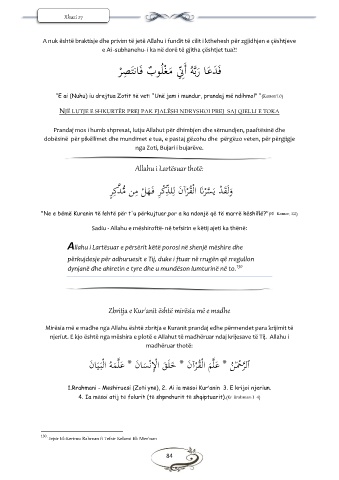 Xhuzi 27
A nuk është braktisje dhe privim të jetë Allahu i fundit të cilit i kthehesh për zgjidhjen e çështjeve
e Ai-subhanehu- i ka në dorë të gjitha çështjet tua!!
فَدَعَا رَبَّهُ أَنِّي مَغْلُوبٌ فَانتَصِرْ
"E ai (Nuhu) iu drejtua Zotit të vet: "Unë jam i mundur, prandaj më ndihmo!"
NJË LUTJE E SHKURTËR PREJ PAK FJALËSH NDRYSHOI PREJ SAJ QIELLI E TOKA
Prandaj mos i humb shpresat, lutju Allahut për dhimbjen dhe sëmundjen, paaftësinë dhe
dobësinë për pikëllimet dhe mundimet e tua, e pastaj gëzohu dhe përgëzo veten, për përgjigje
nga Zoti, Bujari i bujarëve.
Allahu i Lartësuar thotë:
وَلَقَدْ يَسَّرْنَا الْقُرْآنَ لِلذِّكْرِ فَهَلْ مِن مُّدَّكِرٍ
"Ne e bëmë Kuranin të lehtë për t'u përkujtuar,por a ka ndonjë që të marrë këshillë?"
Sadiu - Allahu e mëshiroftë- në tefsirin e këtij ajeti ka thënë:
Allahu i Lartësuar e përsërit këtë porosi në shenjë mëshire dhe
përkujdesje për adhuruesit e Tij, duke i ftuar në rrugën që rregullon
dynjanë dhe ahiretin e tyre dhe u mundëson lumturinë në to.
Zbritja e Kur'anit është mirësia më e madhe
Mirësia më e madhe nga Allahu është zbritja e Kuranit prandaj edhe përmendet para krijimit të
njeriut. E kjo është nga mëshira e plotë e Allahut të madhëruar ndaj krijesave të Tij. Allahu i
madhëruar thotë:
اَلرَّحْمٰنُ * عَلَّمَ الْقُرْآنَ * خَلَقَ الْإِنسَانَ * عَلَّمَهُ الْبَيَانَ
1.Rrahmani - Mëshiruesi (Zoti ynë), 2. Ai ia mësoi Kur'anin 3. E krijoi njeriun.
4. Ia mësoi atij të folurit (të shprehurit të shqiptuarit).
84